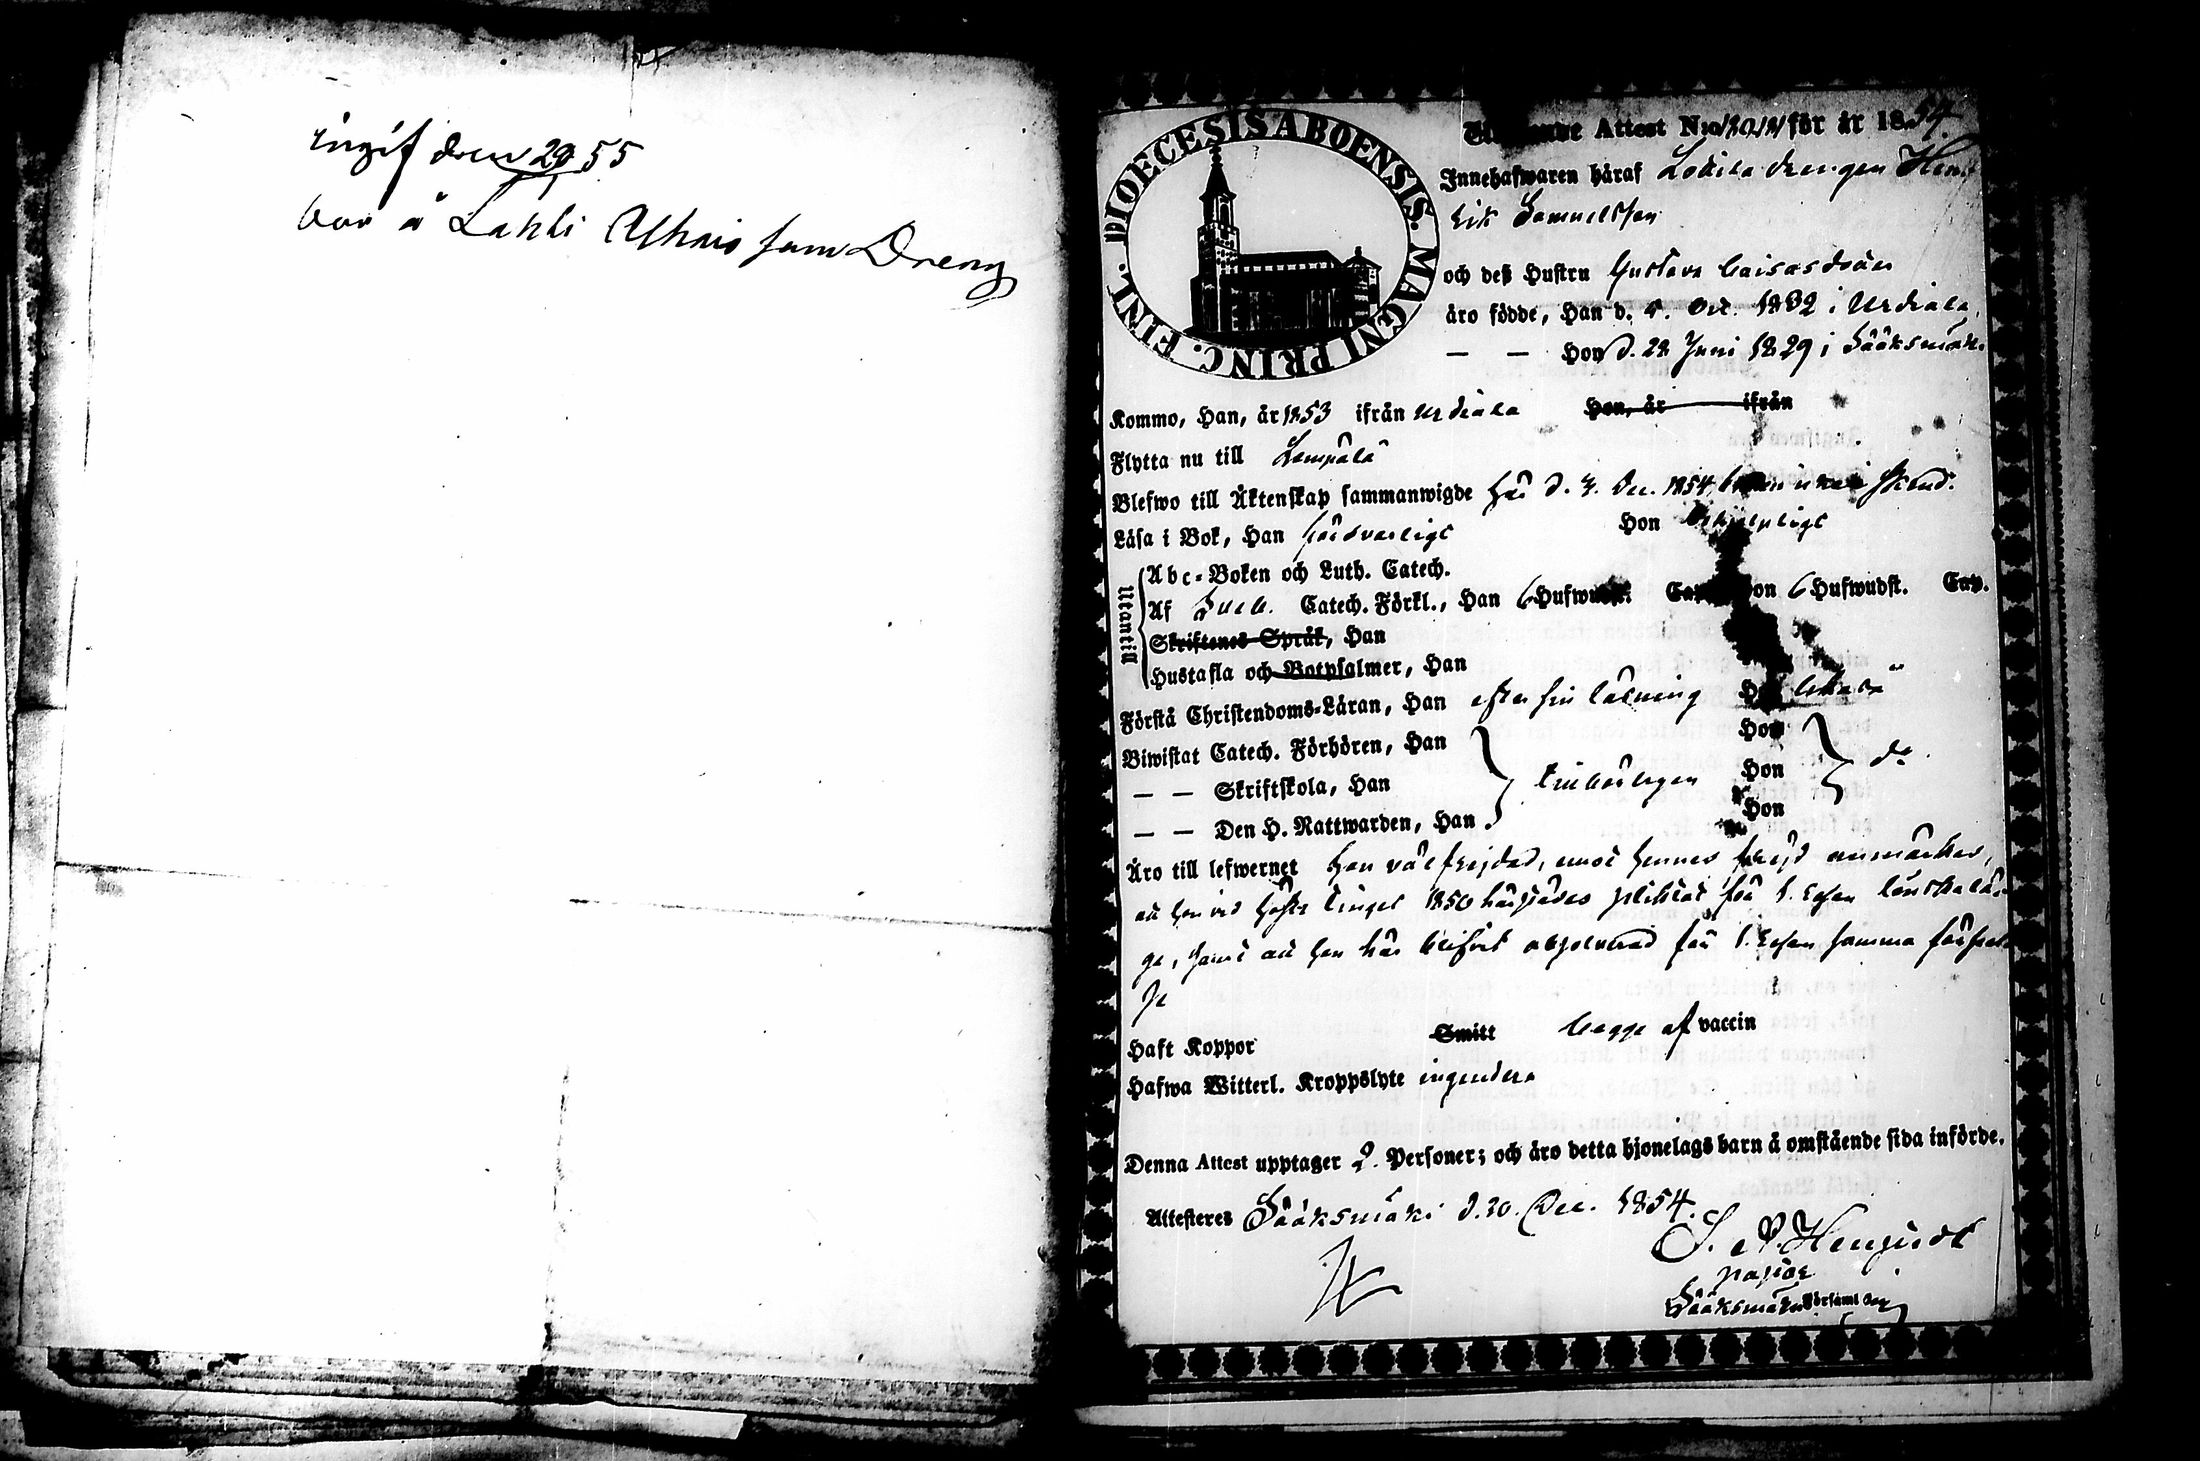 ingif den 29/1 55
bor å Lahli Uhais som Dreng
DIOECESIS ABOENSIS. MAGNI PRINC. FINL.
Attest N:o för år 1854.
Innehafwaren häraf Drengen Hen
rik Samuelsson
och deß Hustru Gustava Caisasdoter
äro födde, Han d. 5. Oct. 1832 i Urdiala,
— — Hon d. 28 Juni 1829 i Sääksmäki
Kommo, Han, år 1853 ifrån Urdiala Hon, år ifrån
Flytta nu till Lempälä
Blefwo till Äktenskap sammanwigde här d. Dec. 1854
Läsa i Bok, Han försvarligt Hon behjelpligt
Utantill
Abc-Boken och Luth. Catech.
Af Sveb. Catech. Förkl., Han 6 Hufwudst. Cap. Hon 6 Hufwudst. Cap.
Skriftenes Språk, Han
Hustafla och Botpsalmer, Han
Förstå Christendoms-Läran, Han efter sin läsning Hon lika så
Biwistat Catech. Förhören, Han Hon
— — Skriftskola, Han tillbörligen Hon do
— — Den H. Nattwarden, Han Hon
Äro till lefwernet han välfrejdad, emot hennes frejd anmärkes,
att hon vid Höste Tinget 1850 härstädes pliktat för 1. resan lönskalä-
ge, samt att hon här blifvit absolverad för 1. resan samma förseel-
se
Haft Koppor Smitt begge af vaccin
Hafwa Witterl. Kroppslyte ingendera
Denna Attest upptager 2. Personer; och äro detta hjonelags barn å omstående sida införde.
Attesteras Sääksmäki d. 20. Dec. 1854.
Pastor
Sääksmäki Församl.